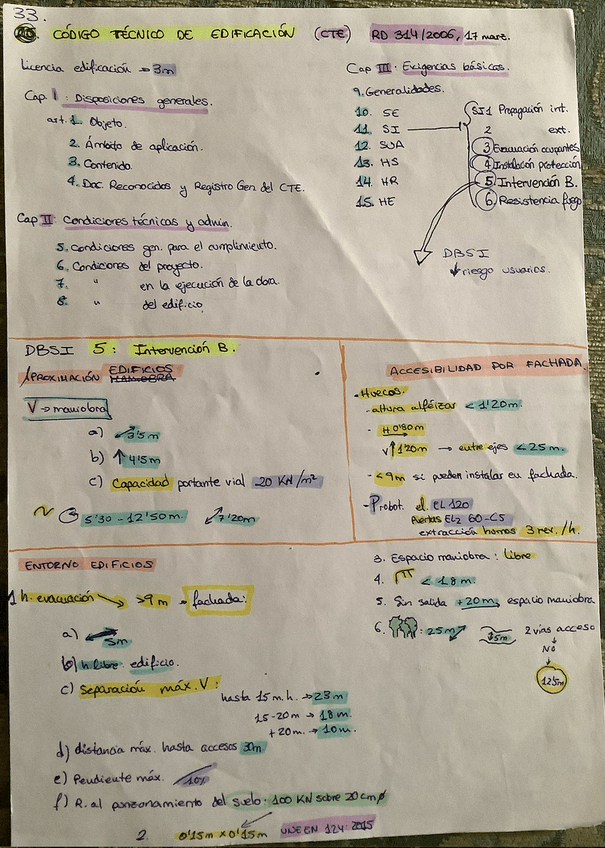 33.
CÓDIGO TÉCNICO DE EDIFICACIÓN (CTE) RD 314/2006, 17 marz.
Licencia edificación → 3m
Cap I: Disposiciones generales.
art. 1. Objeto.
2. Ámbito de aplicación.
3. Contenido.
4. Doc. Reconocidos y Registro Gen del CTE.
Cap II Condiciones técnicas y admin.
5. Condiciones gen. para el cumplimiento.
6. Condiciones del proyecto.
7. " en la ejecución de la obra.
8. " del edificio.
Cap III: Exigencias básicas.
9. Generalidades.
10. SE
11. SI
12. SUA
13. HS
14. HR
15. HE
SI1 Propagación int.
2 ext.
3 Evacuación ocupantes
4 Instalación protección
5 Intervención B.
6 Resistencia fuego
DBSI
↓ riesgo usuarios.
DBSI 5: Intervención B.
APROXIMACIÓN EDIFICIOS
V → maniobra
a) 3'5m
b) ↑ 4'5m
c) Capacidad portante vial 20 KN/m²
5'30 - 12'50m. 7'20m
ACCESIBILIDAD POR FACHADA.
- Huecos.
- altura alféizar < 1'20m
- H 0'80m
V↑ 1'20m → entre ejes < 25m.
- < 9m si pueden instalar en fachada.
- Probot. el. EL 120
Puertas EL2 60-C5
extracción humos 3 rev./h.
ENTORNO EDIFICIOS
1 h. evacuación > 9m = fachada:
a) 5m
b) h libre edificio.
c) Separación máx. V:
hasta 15m. h. → 23m
15-20m → 18m.
+20m. → 10m.
d) distancia máx. hasta accesos 30m
e) Pendiente máx. 10%
f) R. al punzonamiento del suelo: 100 KN sobre 20cm φ
2. 0'15m x 0'15m UNE EN 124:2015
3. Espacio maniobra: libre
4. < 1'8m.
5. Sin salida +20m, espacio maniobra
6. 25m 2 vías acceso
No